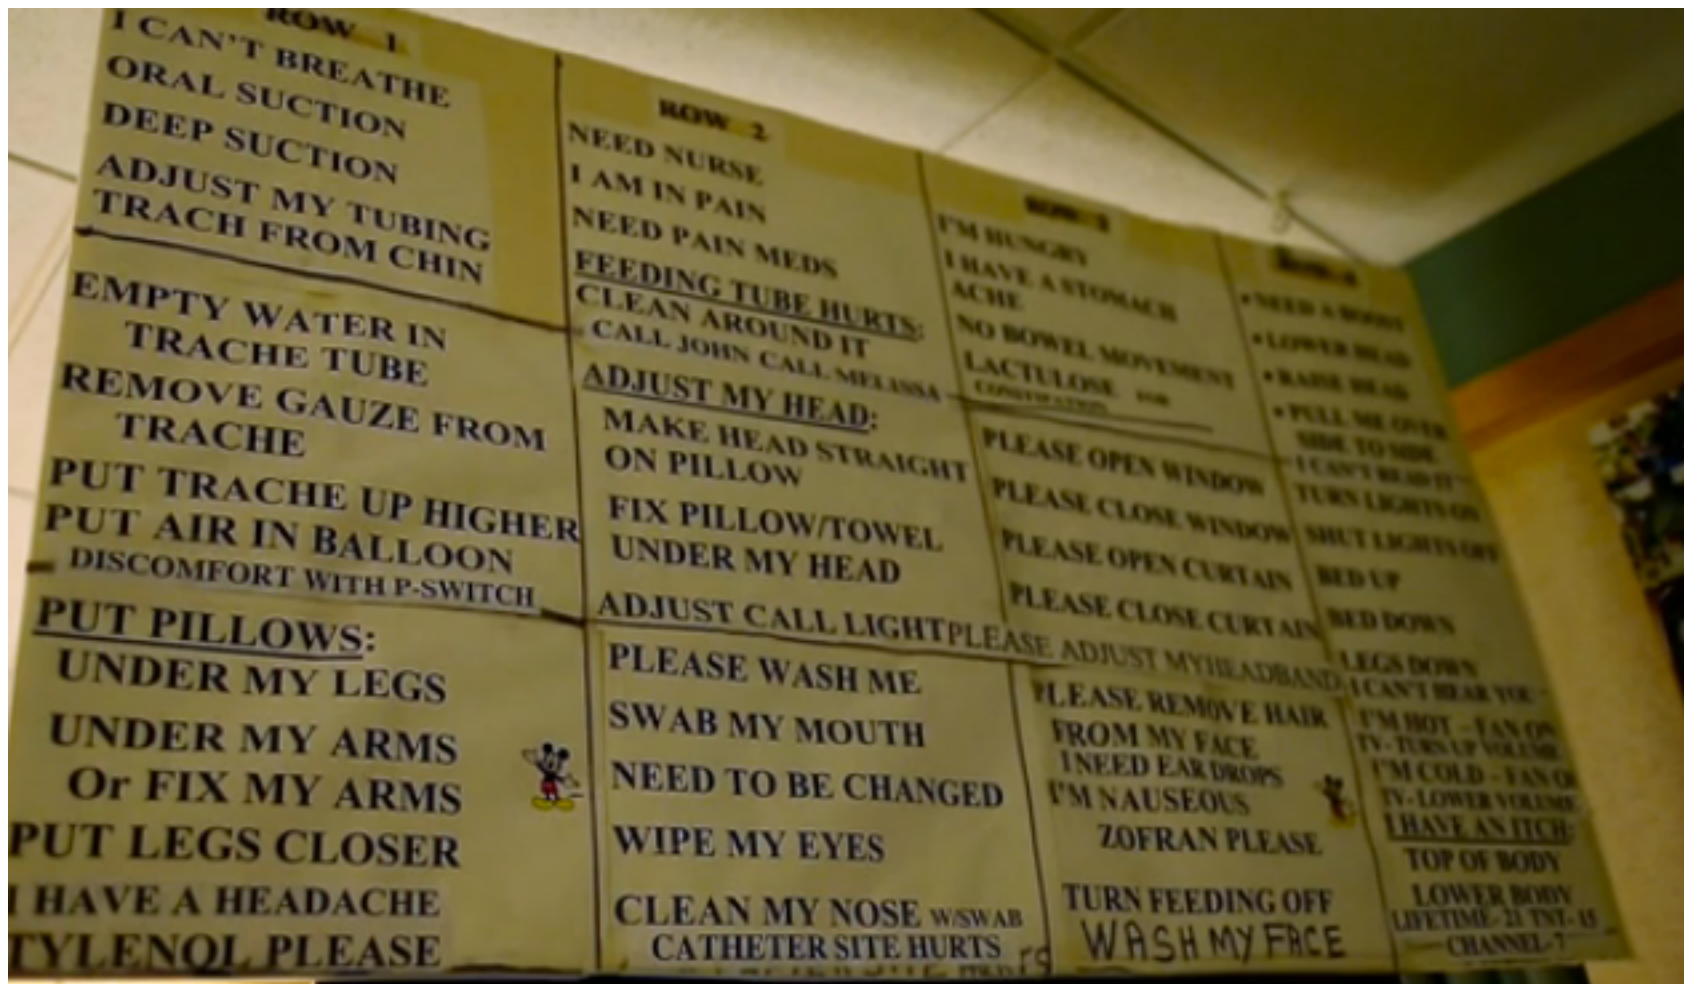 ROW 1
I CAN'T BREATHE
ORAL SUCTION
DEEP SUCTION
ADJUST MY TUBING
TRACH FROM CHIN
EMPTY WATER IN
TRACHE TUBE
REMOVE GAUZE FROM
TRACHE
PUT TRACHE UP HIGHER
PUT AIR IN BALLOON
DISCOMFORT WITH P-SWITCH
PUT PILLOWS:
UNDER MY LEGS
UNDER MY ARMS
Or FIX MY ARMS
PUT LEGS CLOSER
I HAVE A HEADACHE
TYLENOL PLEASE
ROW 2
NEED NURSE
I AM IN PAIN
NEED PAIN MEDS
FEEDING TUBE HURTS:
CLEAN AROUND IT
CALL JOHN CALL MELISSA
ADJUST MY HEAD:
MAKE HEAD STRAIGHT
ON PILLOW
FIX PILLOW/TOWEL
UNDER MY HEAD
ADJUST CALL LIGHT
PLEASE WASH ME
SWAB MY MOUTH
NEED TO BE CHANGED
WIPE MY EYES
CLEAN MY NOSE W/SWAB
CATHETER SITE HURTS
ROW 3
I'M HUNGRY
I HAVE A STOMACH
ACHE
NO BOWEL MOVEMENT
LACTULOSE FOR
CONSTIPATION
PLEASE OPEN WINDOW
PLEASE CLOSE WINDOW
PLEASE OPEN CURTAIN
PLEASE CLOSE CURTAIN
PLEASE ADJUST MYHEADBAND
PLEASE REMOVE HAIR
FROM MY FACE
I NEED EAR DROPS
I'M NAUSEOUS
ZOFRAN PLEASE
TURN FEEDING OFF
WASH MY FACE
ROW 4
• NEED A BOOST
• LOWER HEAD
• RAISE HEAD
• PULL ME OVER
SIDE TO SIDE
I CAN'T READ IT
TURN LIGHTS ON
SHUT LIGHTS OFF
BED UP
BED DOWN
LEGS DOWN
I CAN'T HEAR YOU
I'M HOT - FAN ON
TV- TURN UP VOLUME
I'M COLD - FAN
TV- LOWER VOLUME
I HAVE AN ITCH:
TOP OF BODY
LOWER BODY
LIFETIME- 21 TNT- 15
CHANNEL- 7